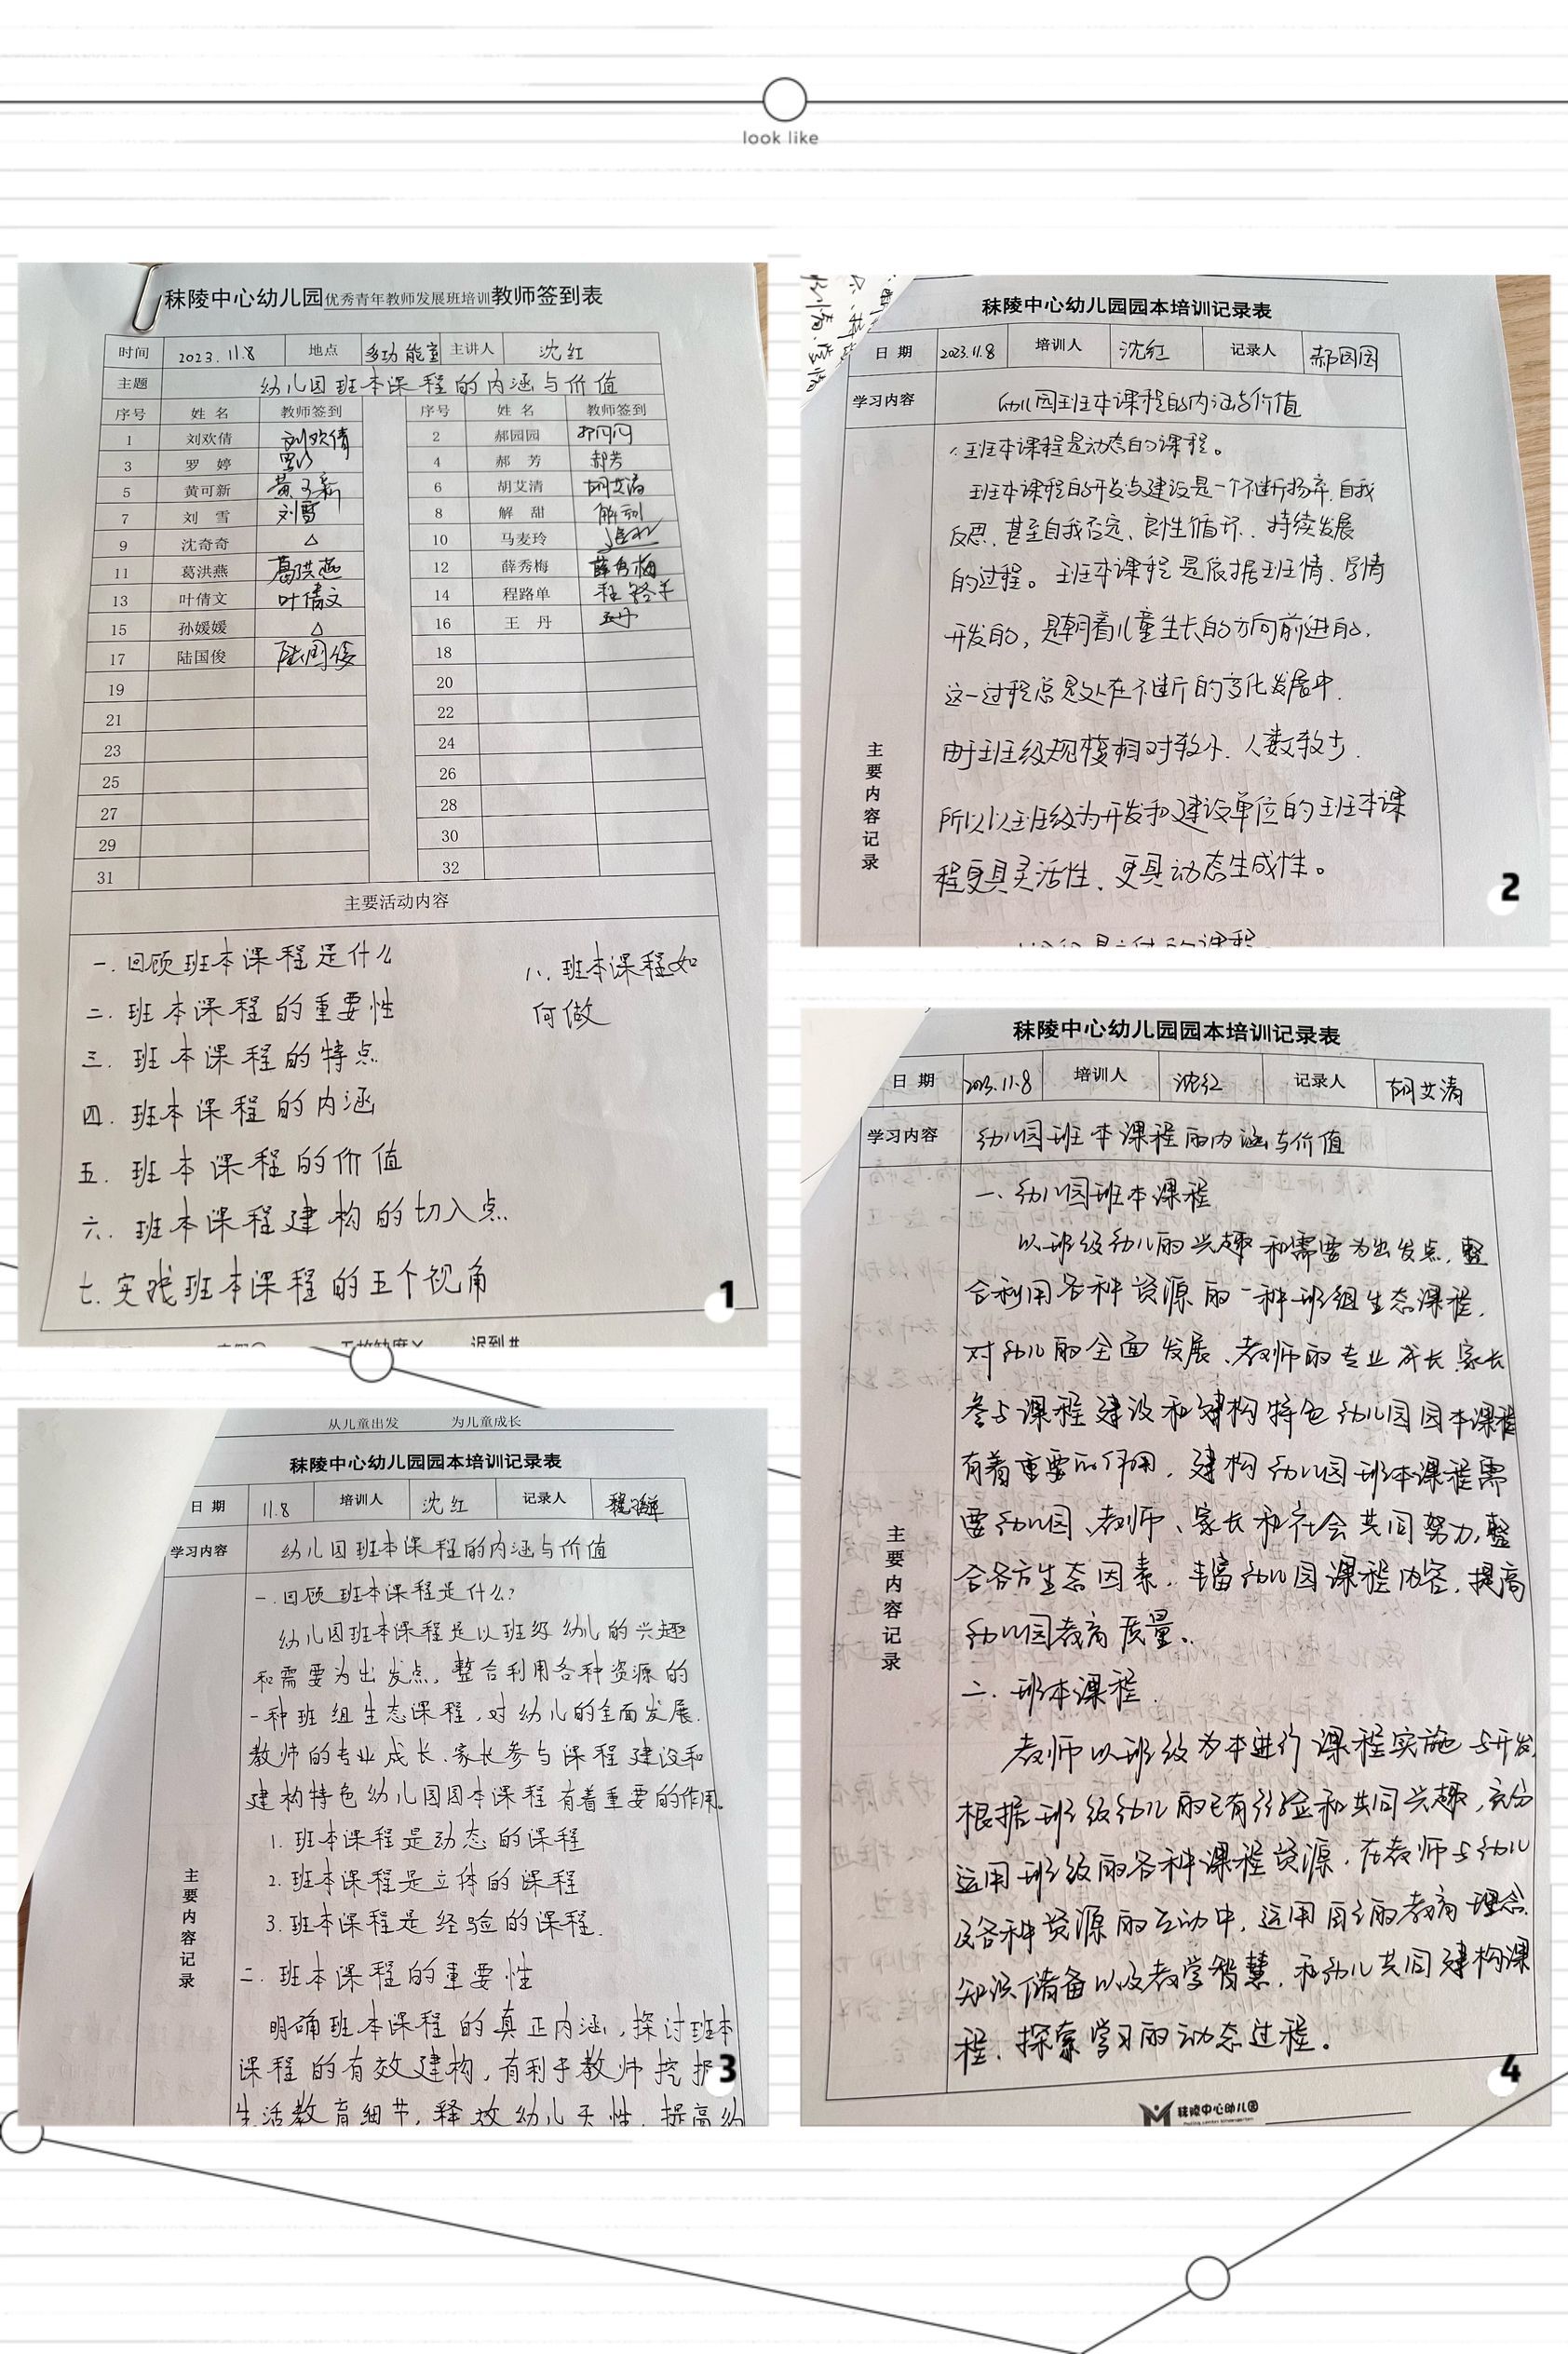 look like
秣陵中心幼儿园优秀青年教师发展班培训教师签到表
时间 2023.11.8 地点 多功能室 主讲人 沈红
主题 幼儿园班本课程的内涵与价值
序号 姓名 教师签到 序号 姓名 教师签到
1 刘欢倩 刘欢倩 2 郝园园
3 罗婷 4 郝芳 郝芳
5 黄可新 黄可新 6 胡艾清 胡艾清
7 刘雪 刘雪 8 解甜
9 沈奇奇 △ 10 马麦玲
11 葛洪燕 葛洪燕 12 薛秀梅 薛秀梅
13 叶倩文 叶倩文 14 程路单 程路单
15 孙媛媛 △ 16 王丹 王丹
17 陆国俊 陆国俊 18
19 20
21 22
23 24
25 26
27 28
29 30
31 32
主要活动内容
一.回顾班本课程是什么
二.班本课程的重要性
三.班本课程的特点
四.班本课程的内涵
五.班本课程的价值
六.班本课程建构的切入点
七.实践班本课程的五个视角
八.班本课程如
何做
迟到#
1
秣陵中心幼儿园园本培训记录表
日期 2023.11.8 培训人 沈红 记录人 郝园园
学习内容 幼儿园班本课程的内涵与价值
主要内容记录
1.班本课程是动态的课程。
班本课程的开发与建设是一个不断扬弃、自我
反思、甚至自我否定、良性循环、持续发展
的过程。班本课程是依据班情、学情
开发的，是朝着儿童生长的方向前进的，
这一过程总是处在不断的变化发展中.
由于班级规模相对较小、人数较少.
所以以班级为开发和建设单位的班本课
程更具灵活性、更具动态生成性。
2
从儿童出发 为儿童成长
秣陵中心幼儿园园本培训记录表
日期 11.8 培训人 沈红 记录人 程路单
学习内容 幼儿园班本课程的内涵与价值
主要内容记录
一.回顾班本课程是什么?
幼儿园班本课程是以班级幼儿的兴趣
和需要为出发点，整合利用各种资源的
一种班组生态课程，对幼儿的全面发展.
教师的专业成长、家长参与课程建设和
建构特色幼儿园园本课程有着重要的作用。
1.班本课程是动态的课程
2.班本课程是立体的课程
3.班本课程是经验的课程.
二.班本课程的重要性
明确班本课程的真正内涵，探讨班本
课程的有效建构，有利于教师挖掘
生活教育细节，释放幼儿天性，提高幼
3
秣陵中心幼儿园园本培训记录表
日期 2023.11.8 培训人 沈红 记录人 胡艾清
学习内容 幼儿园班本课程的内涵与价值
主要内容记录
一、幼儿园班本课程
以班级幼儿的兴趣和需要为出发点，整
合利用各种资源的一种班组生态课程，
对幼儿的全面发展、教师的专业成长、家长
参与课程建设和建构特色幼儿园园本课程
有着重要的作用，建构幼儿园班本课程需
要幼儿园、教师、家长和社会共同努力，整
合各方生态因素，丰富幼儿园课程内容，提高
幼儿园教育质量。
二、班本课程
教师以班级为本进行课程实施与开发，
根据班级幼儿的已有经验和共同兴趣，充分
运用班级的各种课程资源，在教师与幼儿
及各种资源的互动中，运用自己的教育理念、
知识储备以及教学智慧，和幼儿共同建构课
程、探索学习的动态过程。
秣陵中心幼儿园
4